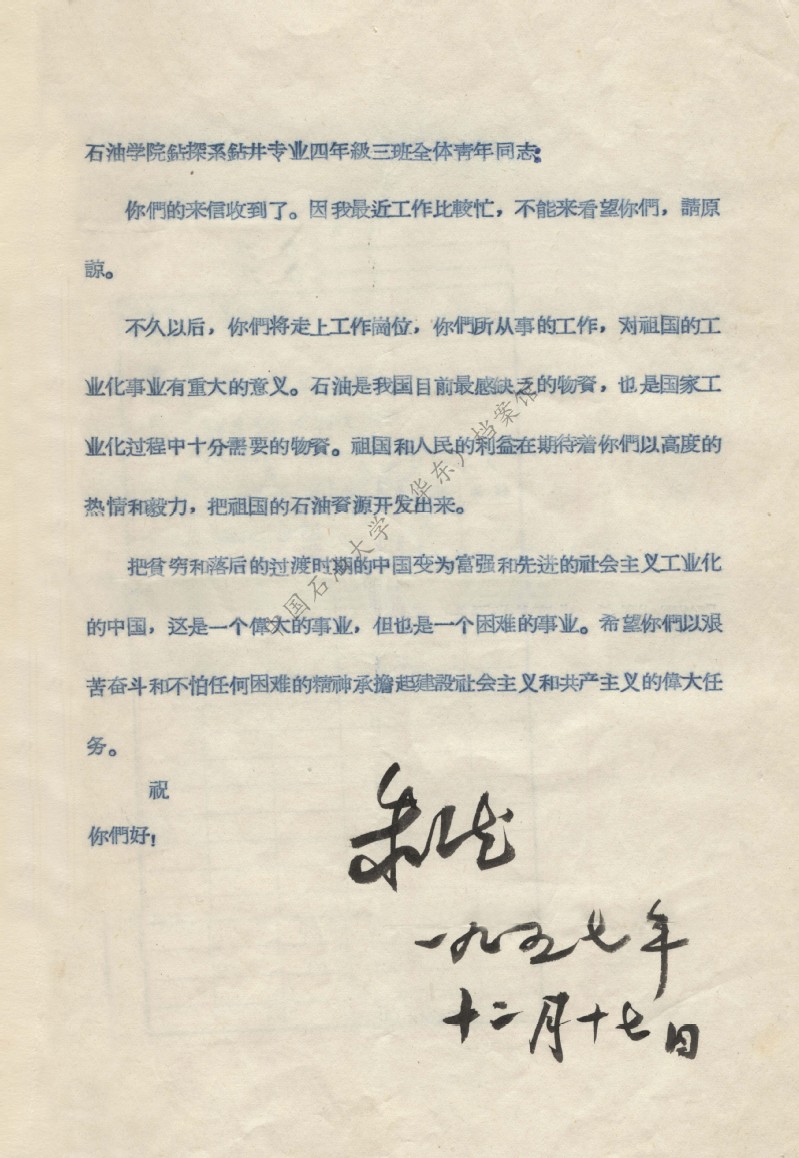 石油学院鈷探系鈷井专业四年級三班全体青年同志:
你們的来信收到了。因我最近工作比較忙，不能来看望你們，請原
諒。
不久以后，你們将走上工作崗位，你們所从事的工作，对祖国的工
业化事业有重大的意义。石油是我国目前最感缺乏的物資，也是国家工
业化过程中十分需要的物資。祖国和人民的利益在期待着你們以高度的
热情和毅力，把祖国的石油資源开发出来。
把貧穷和落后的过渡时期的中国变为富强和先进的社会主义工业化
的中国，这是一个偉大的事业，但也是一个困难的事业。希望你們以艰
苦奋斗和不怕任何困难的精神承擔起建設社会主义和共产主义的偉大任
务。
祝
你們好！
朱德
一九五七年
十二月十七日
中国石油大学（华东）档案馆